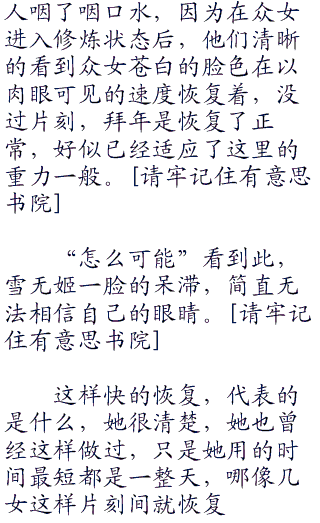 人咽了咽口水，因为在众女
进入修炼状态后，他们清晰
的看到众女苍白的脸色在以
肉眼可见的速度恢复着，没
过片刻，拜年是恢复了正
常，好似已经适应了这里的
重力一般。[请牢记住有意思
书院]
“怎么可能”看到此，
雪无姬一脸的呆滞，简直无
法相信自己的眼睛。[请牢记
住有意思书院]
这样快的恢复，代表的
是什么，她很清楚，她也曾
经这样做过，只是她用的时
间最短都是一整天，哪像几
女这样片刻间就恢复